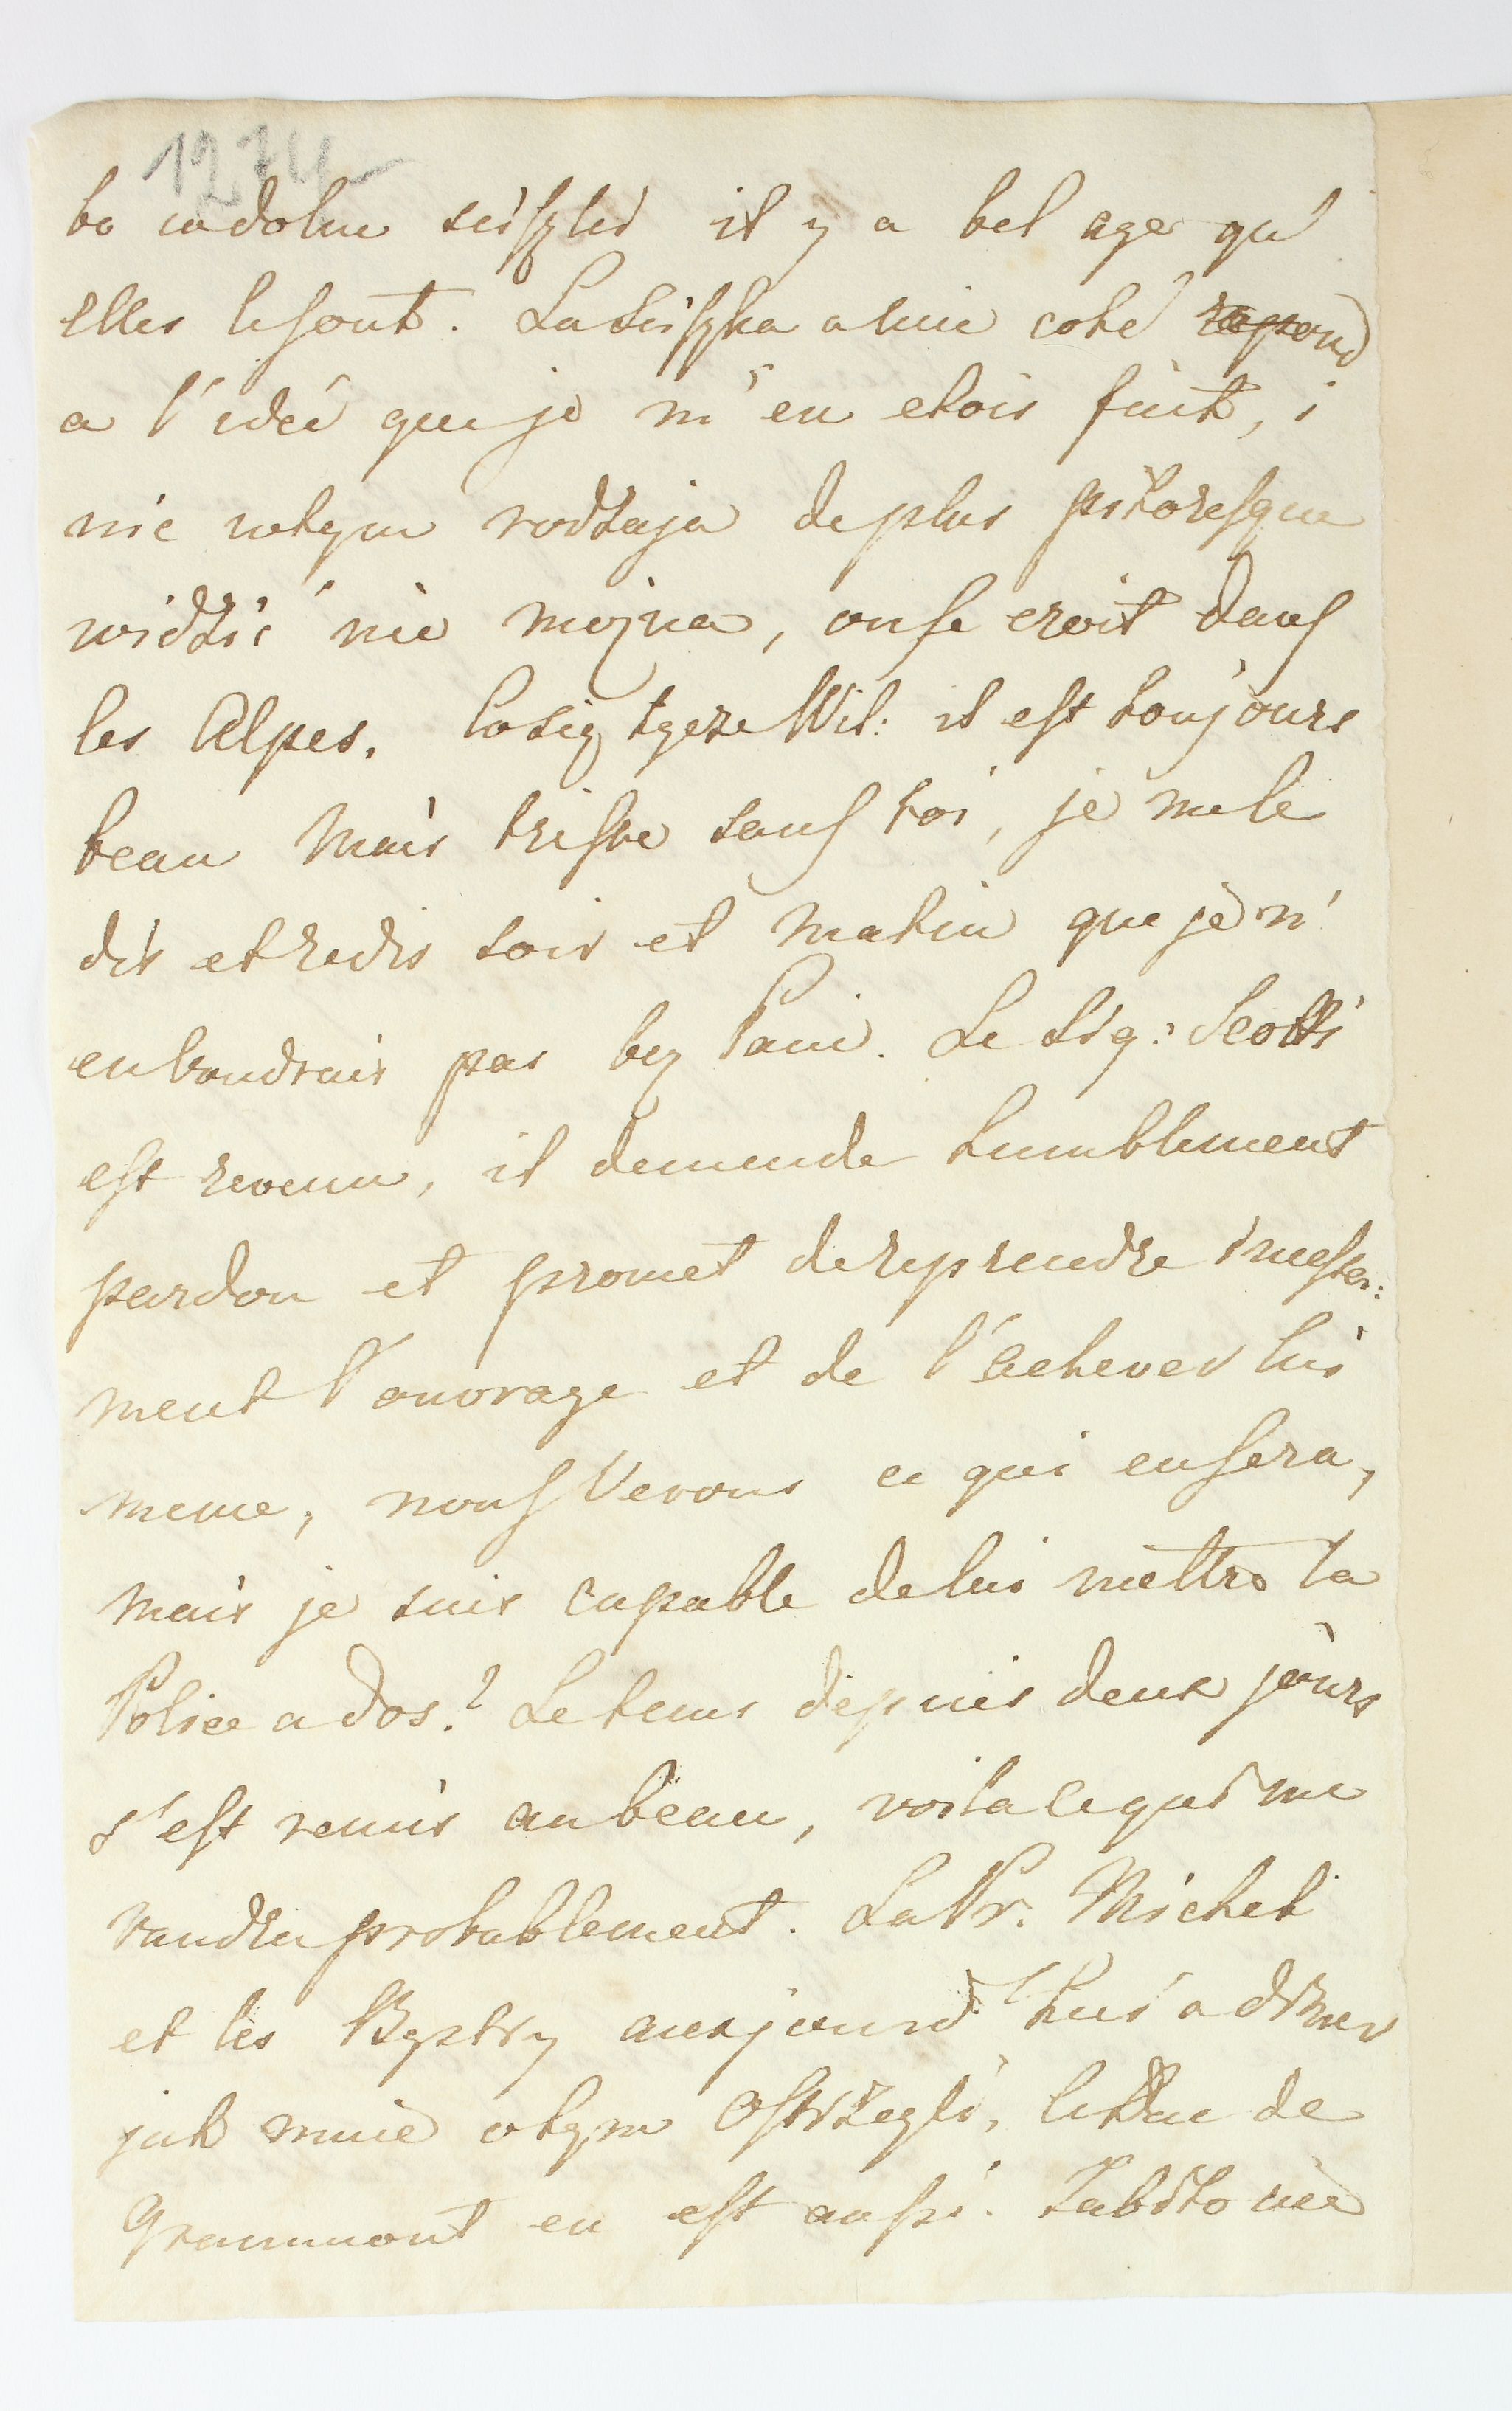 1274
bo wdolne sciszki il y a bel age qu'
elles le sont. La Sciszka a une coté repond
a l'ideé que je m'en etois fait, i
nic wtym rodzaja de plus pitoresque
widzić nie mojna, on se croit dans
les Alpes. Cosię tyczeWil: il est toujours
beau mais triste sans toi, je me le
dis et redis soir et matin que je n'
en voudrais pas bez Pani. Le Sig: Scotti
est revenu, il demende humblement
pardon et promet de reprendre incessa:
ment l'ouvrage et de l'achever lui
meme, nous verons ce qui en sera,
mais je suis capable de lui mettre la
Police a dos! Le tems depuis deux jours
s'est remis au beau, voila ce qui me
vaudra probablement. La Pr. Michel
et les Bystry aujourd'hui a diner
jak mnie otym ostrzegli, le Duc de
Grammont en est aussi. Zabito nie